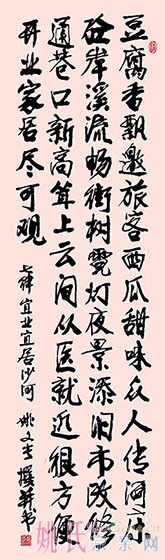 豆腐香飘邀旅客西瓜甜味众人传河
砼岸溪流畅街树霓灯夜景添闹市改修
通巷口新高耸上云间从医就近很方便
开业家居尽可观
七律 宜业宜居沙河 姚文 撰并书
姚氏宗亲网